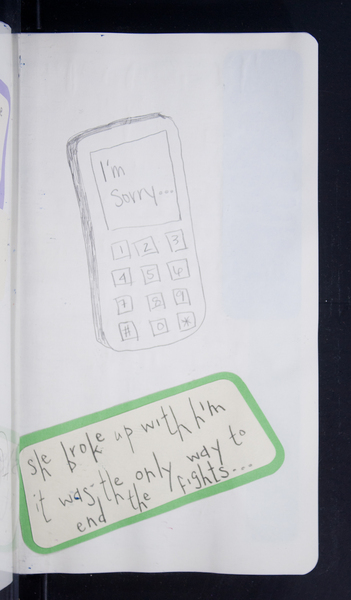 I'm
Sorry...
1 2 3
4 5 6
7 8 9
# 0 *
she broke up with him
it was the only way to
end the fights...